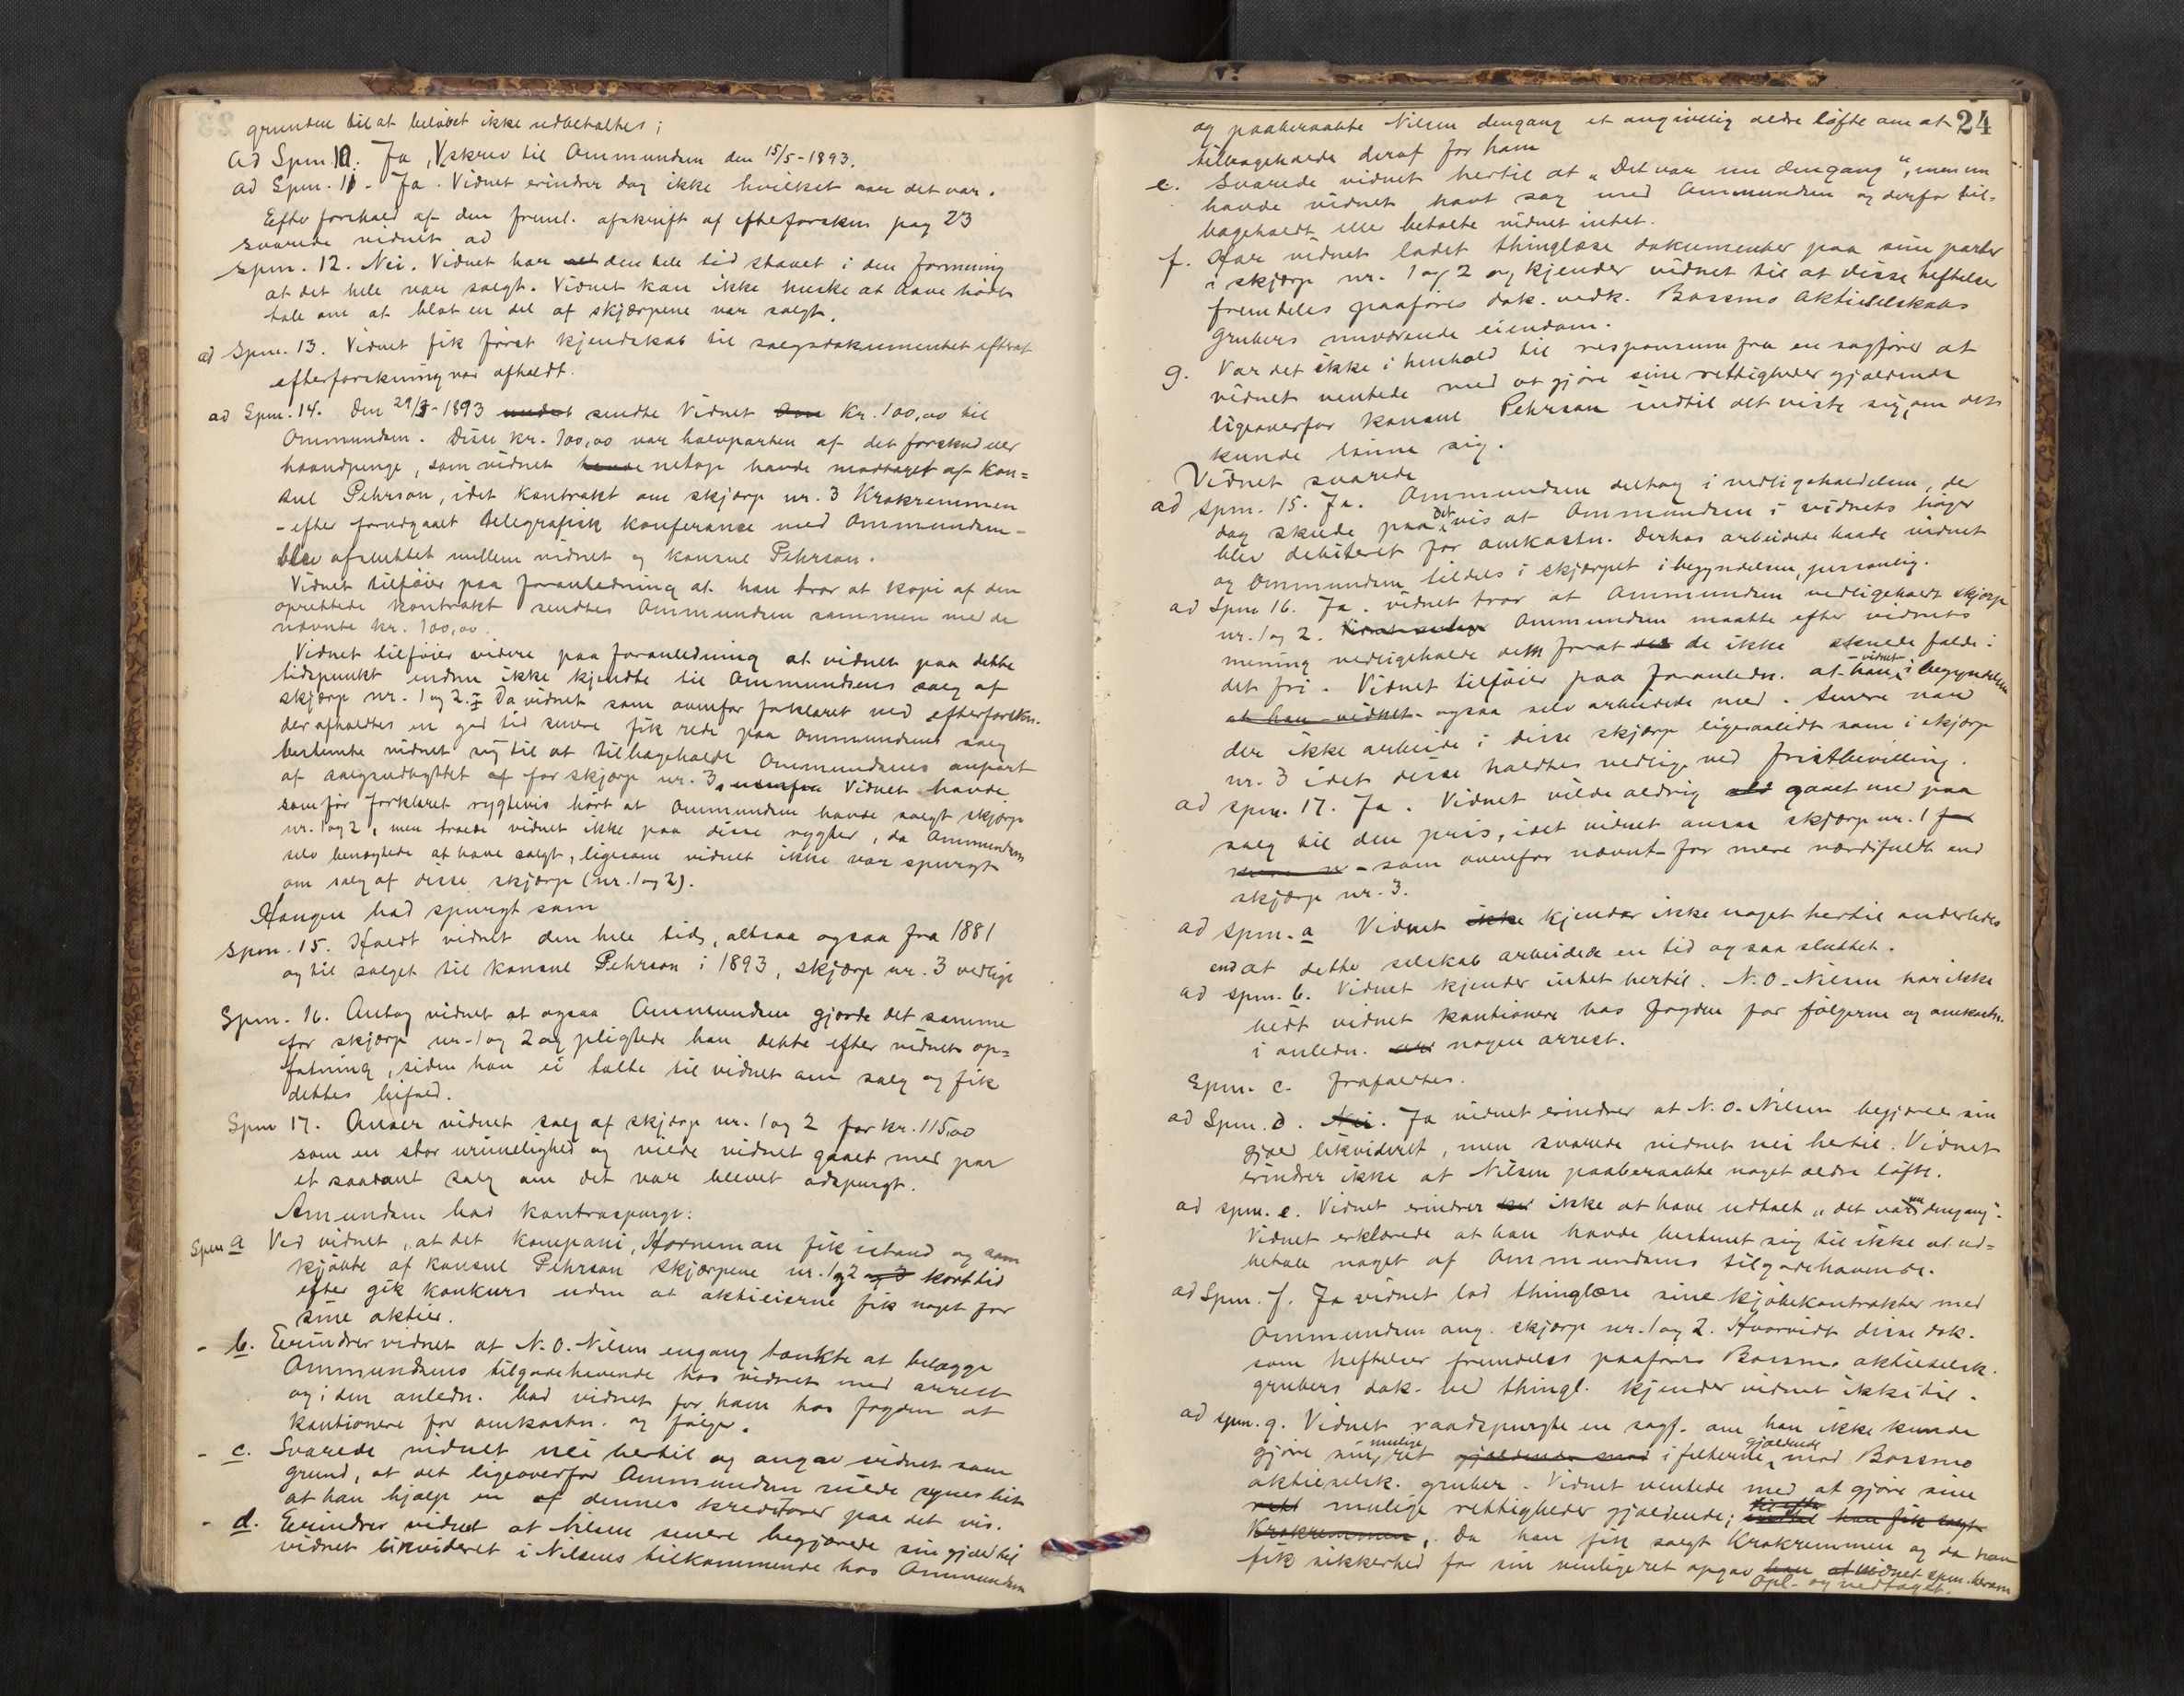 grunden til at beløbet ikke udbetaltes;
ad Spm. 10. Ja, V. skrev til Ammundsen den 15/5-1893.
ad Spm. 11. Ja. Vidnet erindrer dog ikke hvilket aar det var.
Efter forehold af den freml. afskrift af efterforskn pag 23
svarede vidnet ad
Spm. 12. Nei. Vidnet har den hele tid staaet i den formening
at det hele var solgt. Vidnet kan ikke huske at have hørt
tale om at blot en del af skjærpene var solgt.
ad Spm. 13. Vidnet fik først kjendskab til salgsdokumentet efterat
efterforskning var afholdt.
ad Spm. 14. Den 29/3-1893 sendte Vidnet kr. 100,00 til
Ammundsen. Disse kr. 100,00 var halvparten af det forskud eller
haandpenge, som vidnet havde netop havde modtaget af Kon=
sul Pehrson, idet kontrakt om skjærp nr. 3 Krokremmen
- efter forudgaaet telegrafisk konferanse med Ammundsen -
blev afsluttet mellem vidnet og konsul Pehrson.
Vidnet tilføier paa foranledning at han tror at kopi af den
oprettede kontrakt sendtes Ammundsen sammen med de
nævnte kr. 100,00.
Vidnet tilføier videre paa foranledning at vidnet paa dette
tidspunkt endnu ikke kjendte til Ammundsens salg af
skjærp nr. 1 og 2. Da vidnet som ovenfor forklaret ved efterforskn.
der afholdtes en god tid senere fik rede paa Ammundsens salg
bestemte vidnet sig til at tilbageholde Ammundsens anpart
af salgsudbyttet af for skjærp nr. 3, Vidnet havde
som før forklaret rygtevis hørt at Ammundsen havde solgt skjærp
nr. 1 og 2, men troede vidnet ikke paa disse rygter, da Ammundsen
selv benægtede at have solgt, ligesom vidnet ikke var spurgt
om salg af disse skjærp (nr. 1 og 2).
Haugen bad spurgt som
Spm. 15. Holdt vidnet den hele tid, altsaa ogsaa fra 1881
og til salget til konsul Pehrson i 1893, skjærp nr. 3 vedlige
Spm. 16. Antog vidnet at ogsaa Ammundsen gjorde det samme
for skjærp nr. 1 og 2 og pligtede han dette efter vidnets op=
fatning, siden han ei talte til vidnet om salg og fik
dettes bifald.
Spm 17. Anser vidnet salg af skjærp nr. 1 og 2 for kr. 115,00
som en stor urimelighed og vilde vidnet gaaet med paa
et saadant salg om det var blevet adspurgt.
Amundsen bad kontraspurgt:
Spm a Ved vidnet, at det kompani, Horneman fik istand og som
kjøbte af konsul Pehrson skjærpene nr. 1 og 2 og 3 kort tid
efter gik konkurs uden at aktieeierne fik noget for
sine aktier.
- b. Erindrer vidnet at N. O. Nilsen engang tænkte at belægge
Ammundsens tilgodehavende hos vidnet med arrest
og i den anledn. bad vidnet for ham hos fogden at
kautionere for omkostn. og følger.
- c. Svarede vidnet nei hertil og angav vidnet som
grund, at det ligeoverfor Ammundsen vilde synes lit
at han hjalp en af dennes kreditorer paa det vis.
- d. Erindrer vidnet at Nilsen senere begjærede sin gjæld til
vidnet likvideret i Nilsens tilkommende hos Ammundsen
24
og paaberaabte Nilsen dengang et angivelig ældre løfte om at
tilbageholde deraf for ham
e. Svarede vidnet hertil at "Det var nu dengang", men nu
havde vidnet havt sag med Ammundsen og derfor til=
bageholdt eller betalte vidnet intet.
f. Har vidnet ladet thinglæse dokumenter paa sine parter
i skjærp nr. 1 og 2 og kjender vidnet til at disse heftelser
fremdeles paaføres dok. vedk. Bossmo Aktieselskabs
Grubers nuværende eiendom.
g. Var det ikke i henhold til responsum fra en sagfører at
vidnet ventede med at gjøre sine rettigheder gjældende
ligeoverfor konsul Pehrson indtil det viste sig, om det
kunde lønne sig.
Vidnet svarede
ad Spm. 15. Ja. Ammundsen deltog i vedligeholdelsen, der
dog skede paa det vis at Ammundsen i vidnets bøger
blev debiteret for omkostn. Derhos arbeidede baade vidnet
og Ammundsen tildels i skjærpet i begyndelsen, personlig.
ad Spm 16. Ja. vidnet tror at Ammundsen vedligeholdt skjærp
nr. 1 og 2. Ammundsen maatte efter vidnets
mening vedligeholde dem forat de ikke skulde falde i
det fri. Vidnet tilføier paa foranledn. at han vidnet i begyndelsen
at han - vidnet - ogsaa selv arbeidede med. Senere var
der ikke arbeide i disse skjærp ligesaalidt som i skjærp
nr. 3 idet disse holdtes vedlige ved fristbevilling.
ad Spm. 17. Ja. Vidnet vilde aldrig gaaet med paa
salg til den pris, idet vidnet ansaa skjærp nr. 1 for
- som ovenfor nævnt - for mere værdifuldt end
skjærp nr. 3.
ad Spm. a Vidnet ikke kjender ikke noget hertil anderledes
end at dette selskab arbeidede en tid og saa sluttet.
ad Spm. b. Vidnet kjender intet hertil. N. O. Nilsen har ikke
bedt vidnet kautionere hos fogden for følgerne og omkostn.
i anledn. nogen arrest.
Spm. c. frafaldtes.
ad Spm. d. Nei. Ja vidnet erindrer at N. O. Nilsen begjæred sin
gjæld likvideret, men svarede vidnet nei hertil. Vidnet
erindrer ikke at Nilsen paaberaabte noget ældre løfte.
ad Spm. e. Vidnet erindrer ikke at have udtalt "det var nu dengang".
Vidnet erklærede at han havde bestemt sig til ikke at ud=
betale noget af Ammundsens tilgodehavende.
ad Spm. f. Ja vidnet lod thinglæse sine kjøbekontrakter med
Ammundsen ang. skjærp nr. 1 og 2. Hvorvidt disse dok.
som heftelser fremdeles paaføres Bossmo aktieselsk.
grubers dok. ved thingl. kjender vidnet ikke til.
ad Spm. g. Vidnet raadspurgte en sagf. om han ikke kunde
gjøre sin mulige ret gjældende mod i felterne gjældende mod Bossmo
aktieselsk. gruber. Vidnet ventede med at gjøre sine
mulige rettigheder gjældende; han fik solgt
Krokremmen, Da han fik solgt Krokremmen og da han
fik sikkerhed for sin muligeret opgav vidnet spm. herom
Opl. og vedtaget.